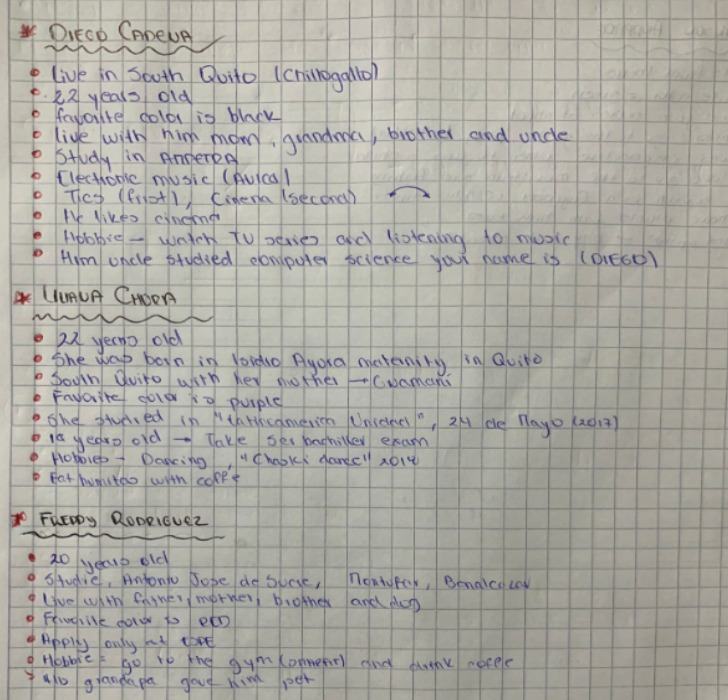 * DIEGO CADENA
• Live in South Quito (Chillogallo)
• 22 years old
• favorite color is black
• Live with him mom, grandma, brother and uncle
• Study in
• Electronic music (Avicci)
• Tics (first), Cinema (second)
• He likes cinema
• Hobbie - watch TV series and listening to music
• Him uncle studied computer science your name is (DIEGO)
*
• 22 years old
• She was born in Isidro Ayora maternity in Quito
• South Quito with her mother → Guamaní
• Favorite color is purple
• She studied in "Latinoamerica Unidad", 24 de Mayo (2017)
• years old → Take Ser bachiller exam
• Hobbies - Dancing, "Chaski dance"
• Eat humitas with coffe
* FREDDY RODRIGUEZ
• 20 years old
• Studie, Antonio Jose de Sucre, Montufar, Benalcazar
• Live with father, mother, brother and dog
• Favorite color is RED
• Apply only at ESPE
• Hobbie = go to the gym and drink coffe
• His grandapa gave him pet